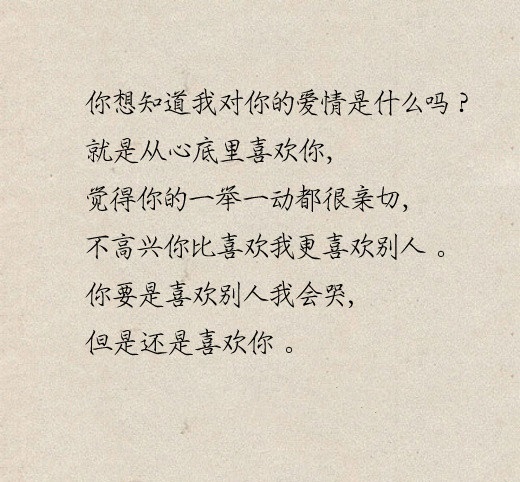 你想知道我对你的爱情是什么吗？
就是从心底里喜欢你,
觉得你的一举一动都很亲切,
不高兴你比喜欢我更喜欢别人 。
你要是喜欢别人我会哭,
但是还是喜欢你 。